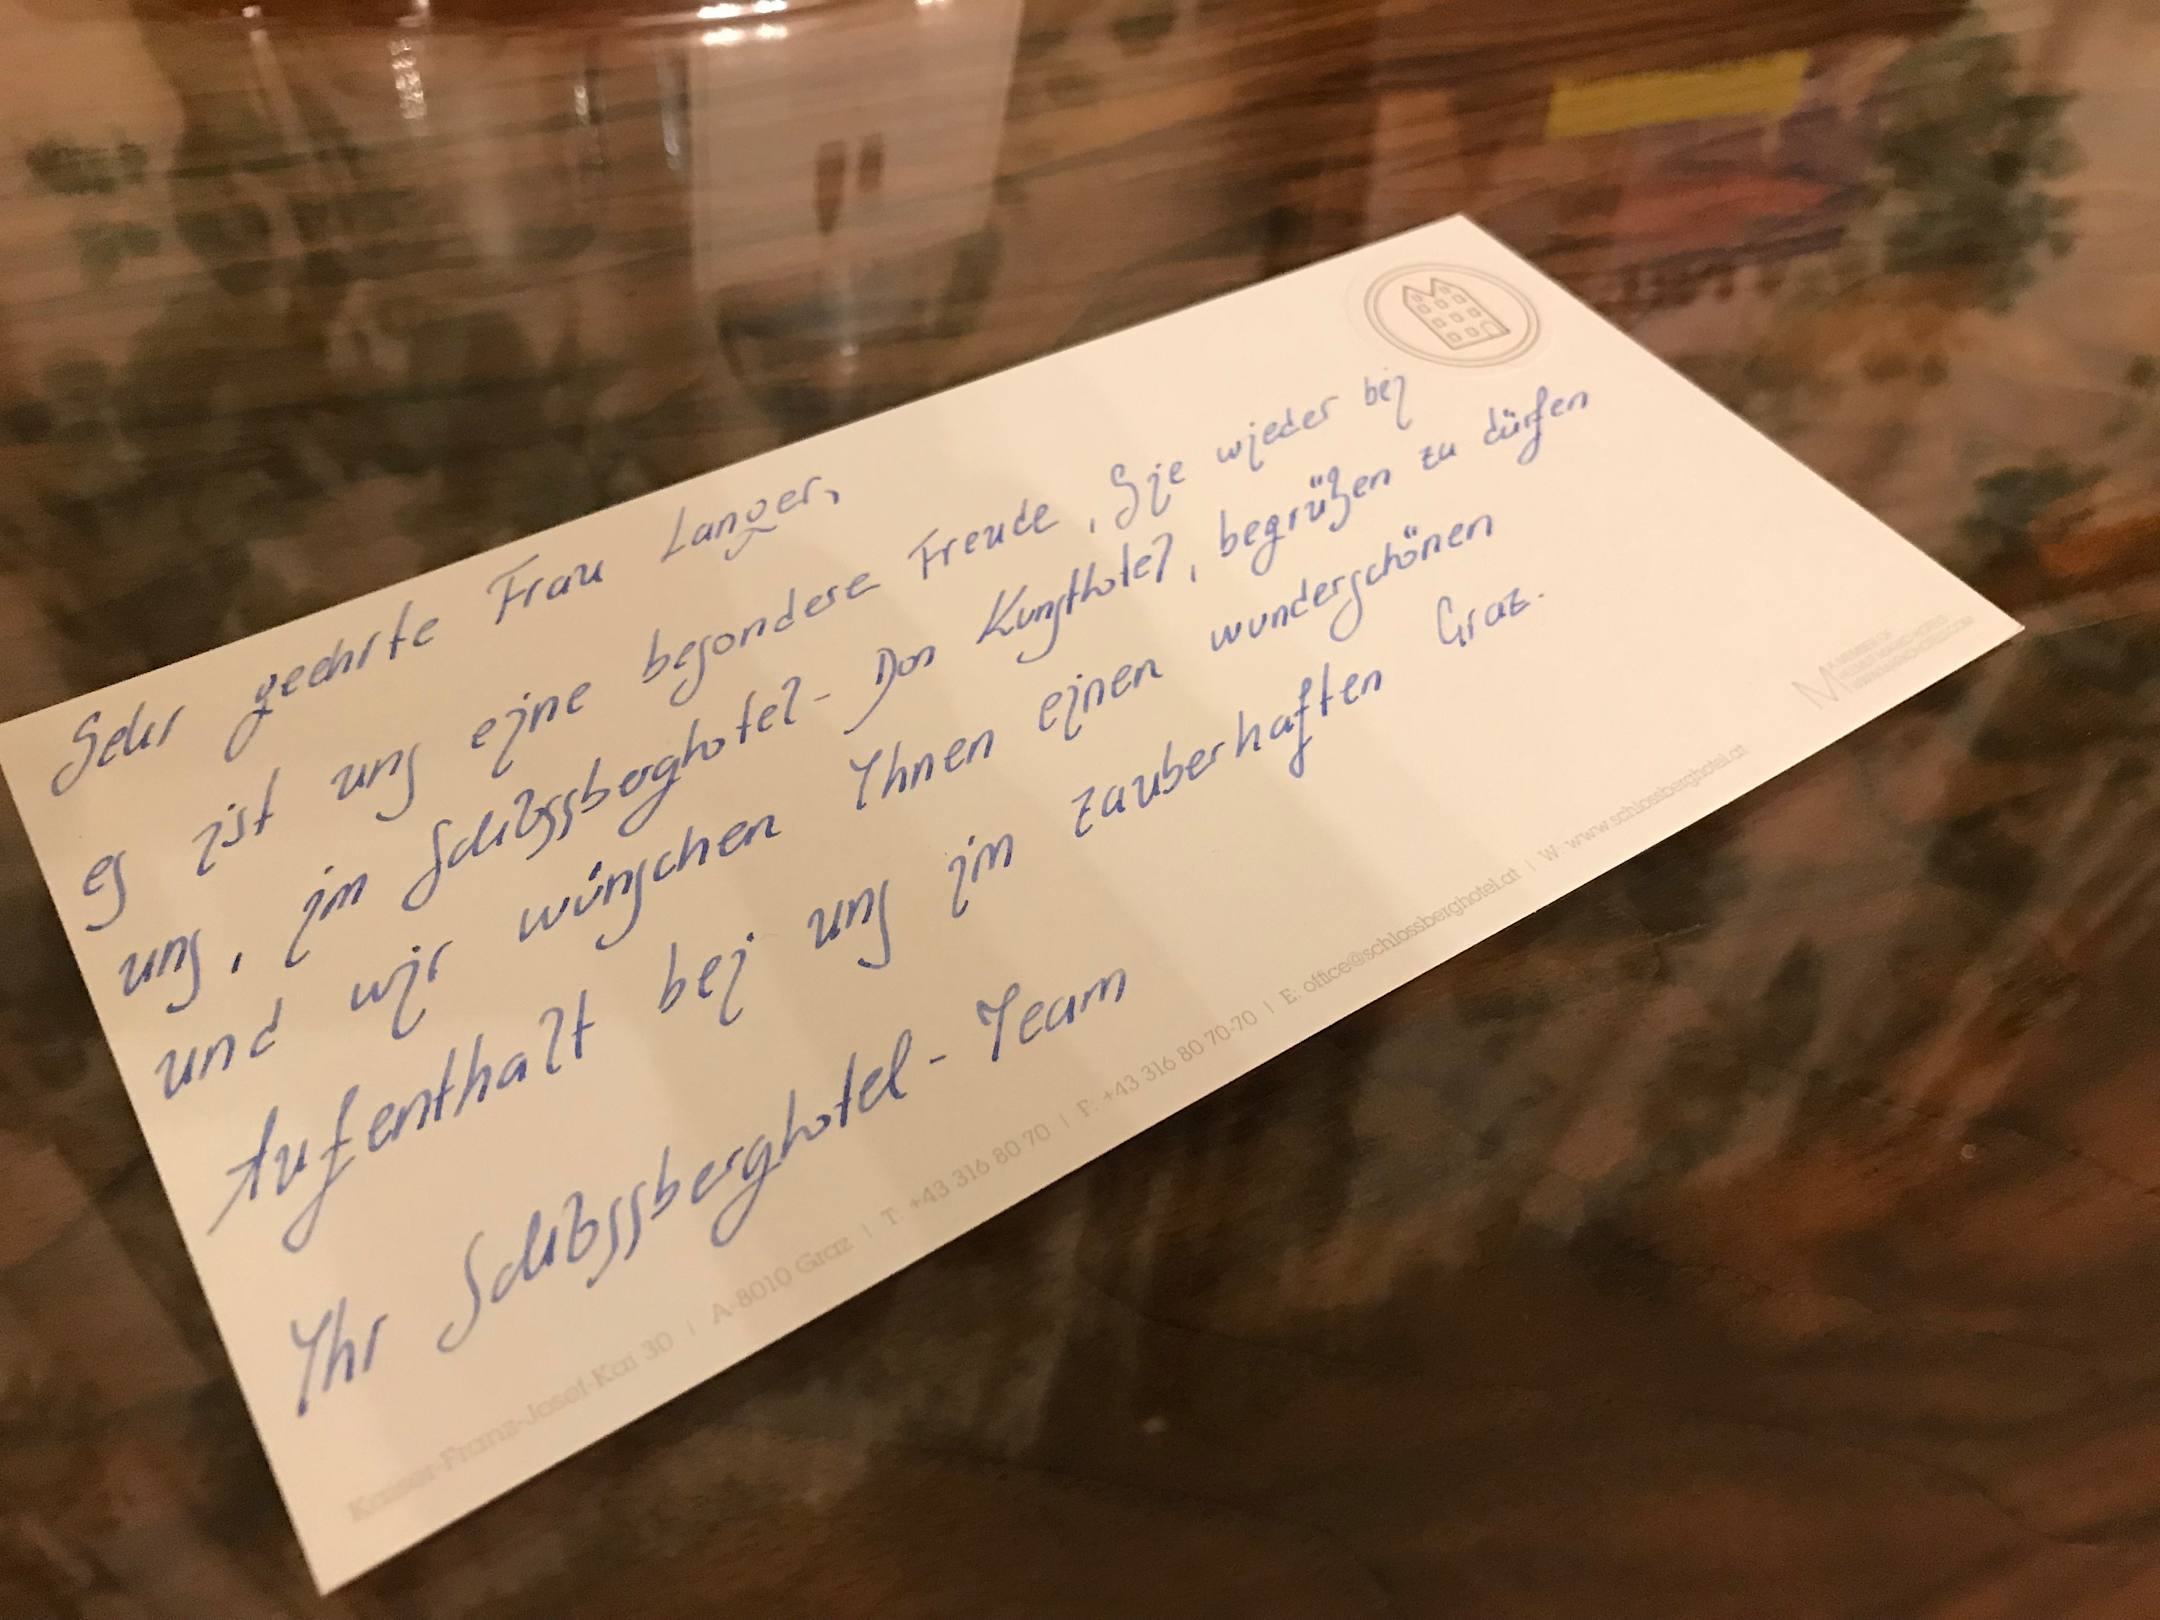 Sehr geehrte Frau Langer,
es ist uns eine besondere Freude, Sie wieder bei
uns, im Schlossberghotel - Das Kunsthotel, begrüßen zu dürfen
und wir wünschen Ihnen einen wunderschönen
Aufenthalt bei uns im zauberhaften Graz.
Ihr Schlossberghotel-Team
Kaiser-Franz-Josef-Kai 30 | A-8010 Graz | T: +43 316 80 70 | F: +43 316 80 70-70 | E: office@schlossberghotel.at | W: www.schlossberghotel.at
M